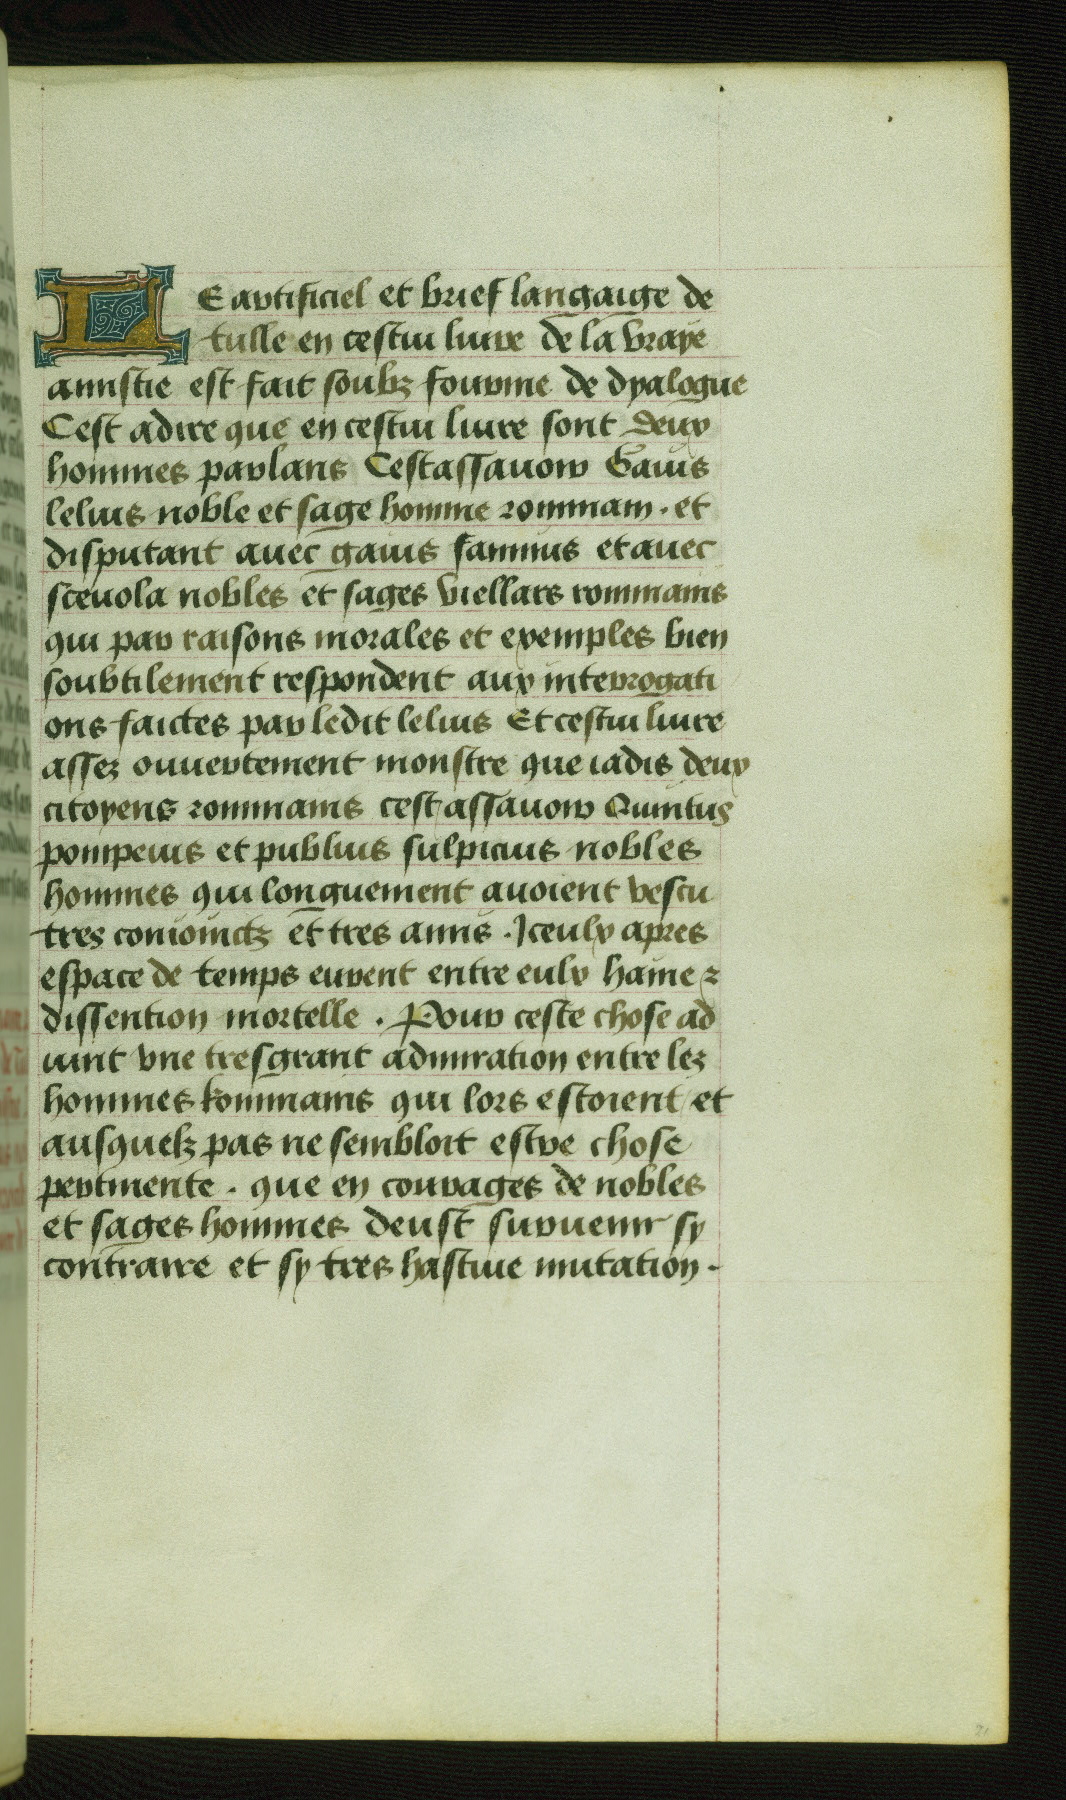 LE artificiel et brief langaige de
tulle en cestui liure de la vraye
amistie est fait soubz fourme de dyalogue
Cest adire que en cestui liure sont deux
hommes parlans Cestassauoir Gaius
lelius noble et sage homme rommain . et
disputant auec gaius fannius et auec
sceuola nobles et sages viellars rommains
qui par raisons morales et exemples bien
soubtilement respondent aux interrogati
ons faictes par ledit lelius Et cestui liure
assez ouuertement monstre que iadis deux
citoyens rommains cest assauoir Quintus
pompeius et publius sulpicius nobles
hommes qui longuement auoient vescu
tres conioinctz et tres amis . Iceulx apres
espace de temps eurent entre eulx haine ⁊
dissention mortelle . Pour ceste chose ad
uint vne tresgrant admiration entre lez
hommes Rommains qui lors estoient et
ausquelz pas ne sembloit estre chose
pertinente . que en courages de nobles
et sages hommes deust suruenir sy
contraire et sy tres hastiue mutation .
21